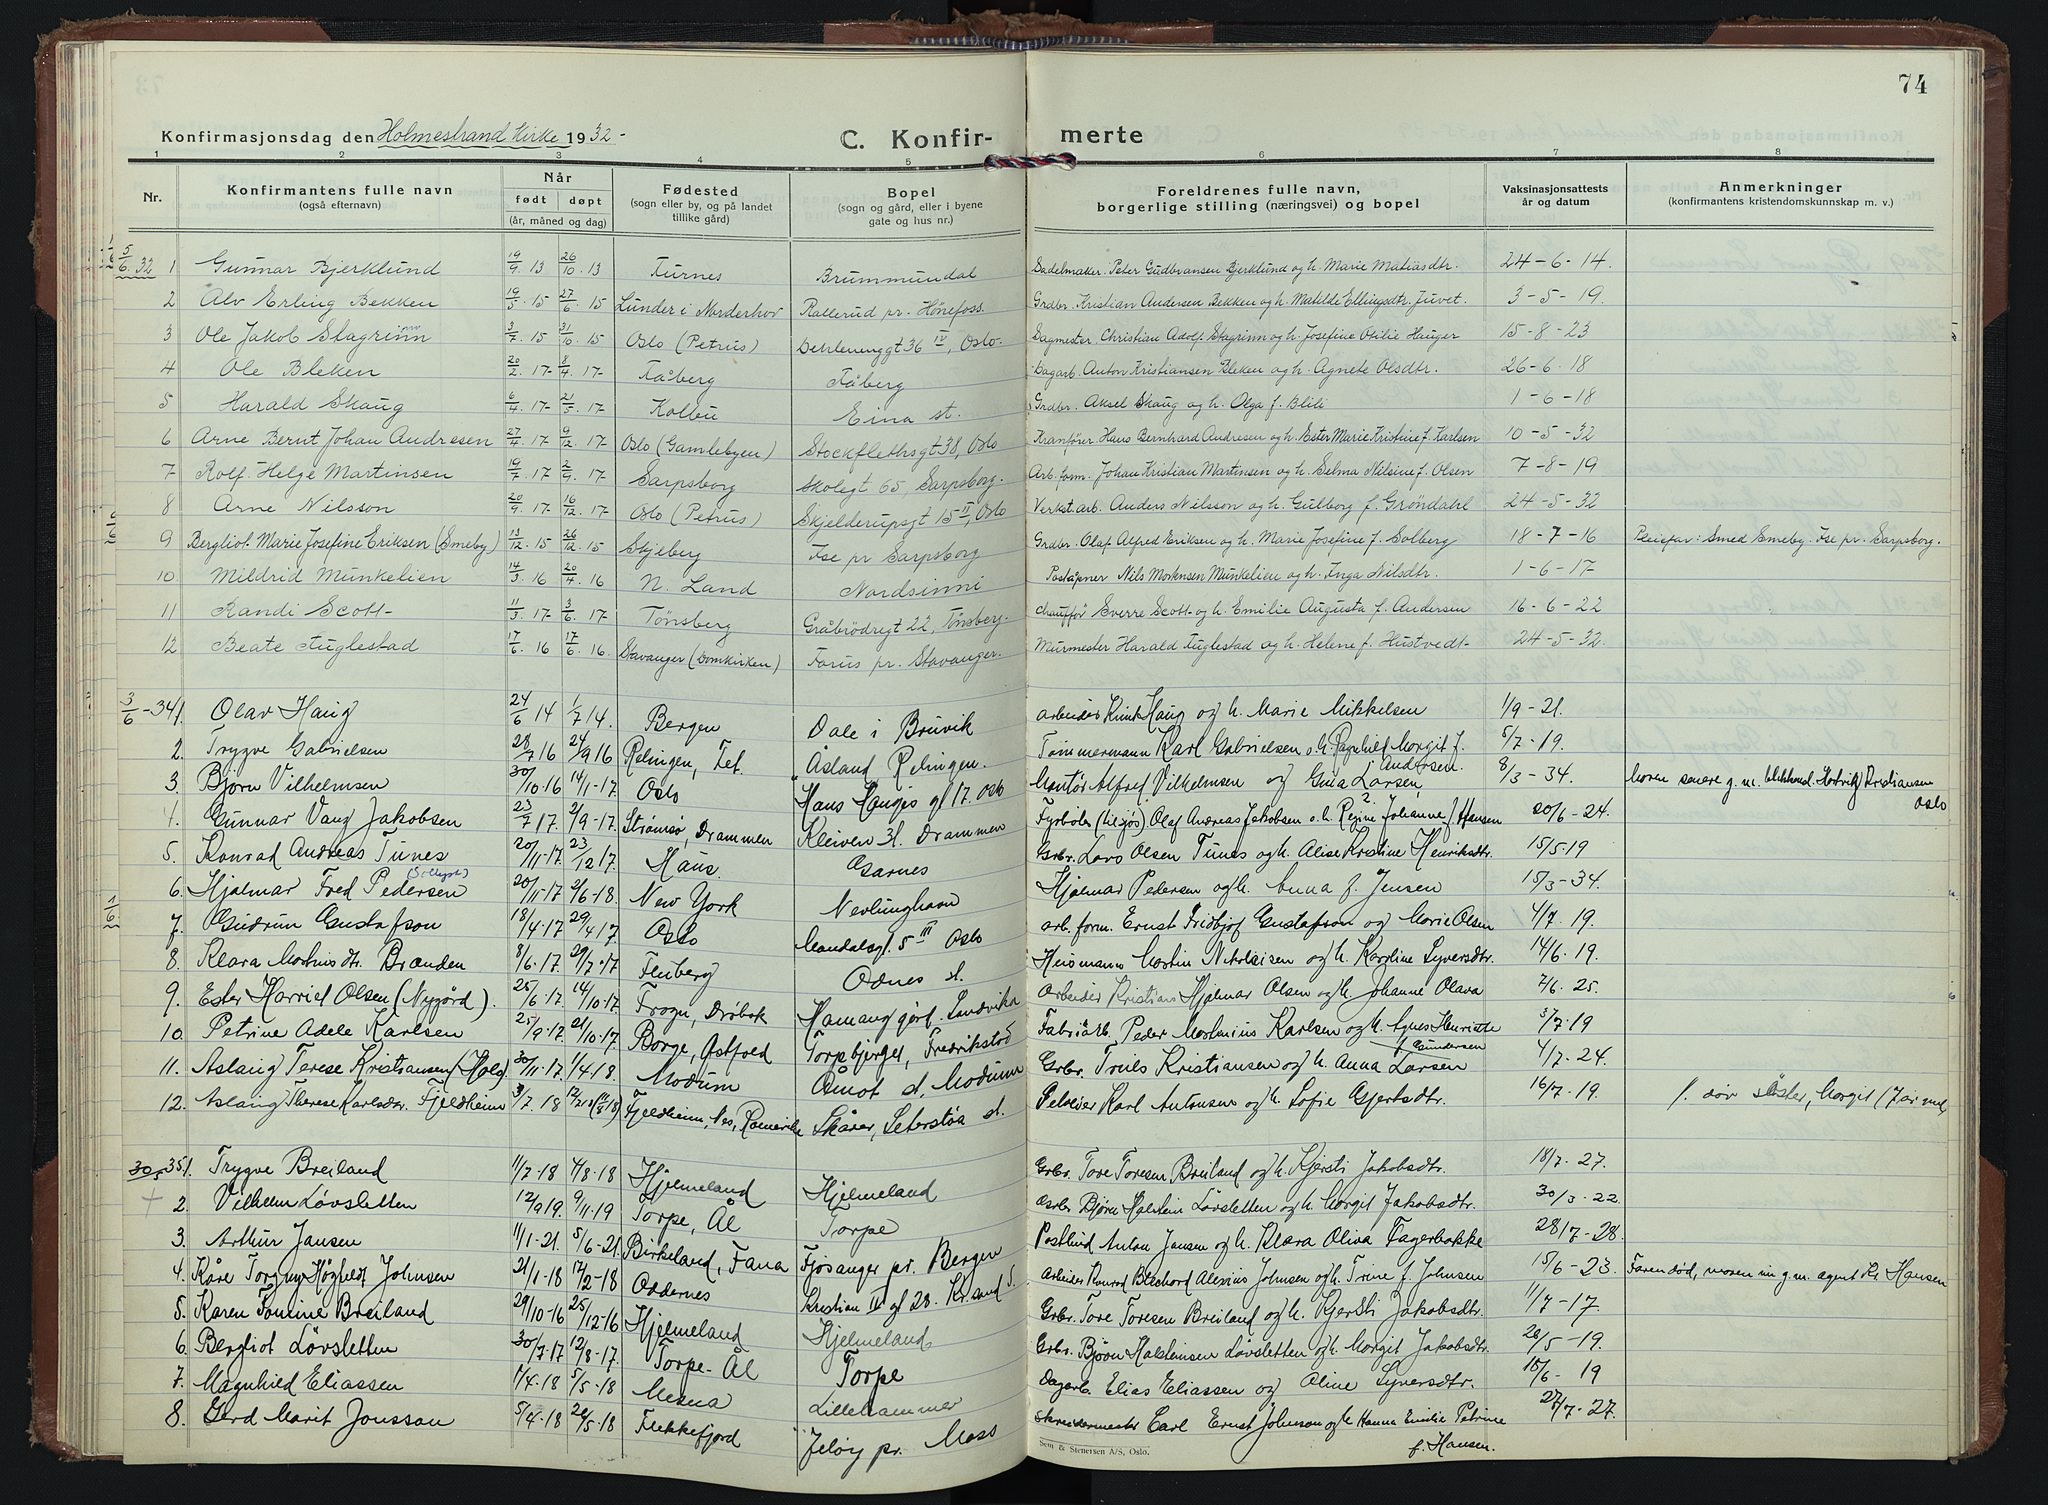 74
Konfirmasjonsdag den Holmestrand Kirke 1932-
C. Konfirmerte
1 2 3 4 5 6 7 8
Nr. Konfirmantens fulle navn (også efternavn) Når født døpt (år, måned og dag) Fødested (sogn eller by, og på landet tillike gård) Bopel (sogn og gård, eller i byene gate og hus nr.) Foreldrenes fulle navn, borgerlige stilling (næringsvei) og bopel Vaksinasjonsattests år og datum Anmerkninger (konfirmantens kristendomskunnskap m. v.)
5/6. 32 1 Gunnar Bjerklund 19/9. 13 26/10. 13 Furnes Brummundal Sadelmaker. Peter Gudbransen Bjerklund og h. Marie Matiasdtr. 24-6-14.
2 Alv Erling Bekken 19/5. 15 27/6. 15 Lunder i Norderhov Rallerud pr. Hönefoss. Grdbr. Kristian Andersen Bekken og h. Matilde Ellingsdtr. Juvet. 3-5-19.
3 Ole Jakob Stagrinn 3/7. 15 31/10. 15 Oslo (Petrus) 36 IV, Oslo- Sagmester. Christian Adolf Stagrinn og h. Josefine Otilie Hauger 15-8-23
4 Ole Bleken 20/2. 17- 8/4. 17- Fåberg Fåberg Dagarb. Anton Kristiansen Bleken og h. Agnete Olsdtr. 26-6-18
5 Harald Skaug 6/4. 17- 21/5. 17- Kolbu Eina st. Grdbr. Aksel Skaug og h. Olga f. Blili 1-6-18
6 Arne Bernt Johan Andresen 27/4. 17 9/12. 17- Oslo (Gamlebyen) Stockflethsgt 38, Oslo Kranfører Hans Bernhard Andresen og h. Ester Marie Kristine f. Karlsen 10-5-32
7 Rolf Helge Martinsen 19/7. 17 2/9. 17- Sarpsborg Skolegt 65, Sarpsborg. Arb. form. Johan Kristian Martinsen og h. Selma Nilsine f. Olsen 7-8-19
8 Arne Nilsson 20/9. 17 16/12. 17- Oslo (Petrus) Skjelderupsgt 15 II, Oslo Verkst. arb. Anders Nilsson og h. Gulborg f. Gröndahl 24-5-32
9 Bergliot Marie Josefine Eriksen (Smeby) 13/12. 15 26/12. 15 Skjeberg Ise pr Sarpsborg Grdbr. Olaf Alfred Eriksen og h. Marie Josefine f. Solberg 18-7-16 Pleiefar: Smed Smeby. Ise pr. Sarpsborg.
10 Mildrid Munkelien 14/3. 16 20/4. 16 N. Land Nordsinni Poståpner Nils Mortensen Munkelien og h. Inga Nilsdtr. 1-6-17-
11 Randi Scott- 11/3. 17- 3/6. 17- Tønsberg Gråbrödregt 22, Tönsberg. Chauffør Sverre Scott- og h. Emilie Augusta f. Andersen 16-6-22
12 Beate Fuglestad 17/6. 16 17/6. 16 Stavanger (Domkirken) Forus pr. Stavanger. Murmester Harald Fuglestad og h. Helene f. Hustvedt- 24-5-32.
3/6-34 1. Olav Haug 24/6 14 1/7 14. Bergen Dale i Bruvik arbeider Knut Haug og h. Marie Mikkelsen 1/9-21.
2. Trygve Gabrielsen 28/7 16 24/9 16 Relingen, Fet. Åsland Relingen. Tømmermann Karl Gabrielsen o. h. Ragnhild Margit f. Andersen. 5/7-19.
3. Bjørn Vilhelmsen 30/10.16 14/11-17. Oslo Hans Hauges gt 17. Oslo Montør Alfred Vilhelmsen og Gina Larsen, 8/3-34. Moren senere g. m. Kristiansen Oslo
4. Gunnar Vang Jakobsen 23/7 17. 2/9-17. Strømsø, Drammen Kleiven 3l. Drammen Fyrbøter (tilsjøs) Olaf Andreas Jakobsen o. h. Regine Johanne f. Hansen 20/6-24.
5. Konrad Andreas Tunes 20/11-17. 23/12 17. Haus Garnes Grbr. Lars Olsen Tunes og h. Alise Kristine Henriksdtr. 15/5-19
6. Hjalmar Fred Pedersen 20/11-17 2/6-18. New York Nevlunghavn Hjalmar Pedersen og h. Anna f. Jensen 15/3-34.
7. Gudrun Gustafson 18/4-17 29/4 17. Oslo Mandalsgt. 5 III Oslo arb. form. Ernst Fridtjof Gustafson og Marie Olsen 4/7. 19.
8. Klara Martinsdtr. Brænden 8/6-17. 29/7-17 Fluberg Odnes st. Heismann Martin Nikolaisen og h. Karoline Syversdtr. 14/6. 19.
9. Ester Harriet Olsen (Nygård). 25/6-17. 14/10-17. Frogn, Drøbak Hamang gård. Sandvika arbeider Kristian Hjalmar Olsen og h. Johanne Olava 7/6. 25.
10. Petrine Adele Karlsen 25/9-17. 21/10-17. Borge, Østfold Torpbjerget, Fredrikstad Fabr.arb. Peder Mortenius Karlsen og h. Agnes Henriette f. Gundersen 5/7. 19
11. Aslaug Terese Kristiansen (Hole) 30/11-17. 1/4-18. Modum Åmot st. Modum Grbr. Truls Kristiansen og h. Anna Larsen 4/7-24.
12. Aslaug Therese Karlsdtr. Fjeldheim 3/7. 18 Fjeldheim, Nes, Romerike Skårer, Seterstøa st. Karl Antonsen og h. Sofie Gjertsdtr. 16/7. 19. 1. døv søster, Margit (7 år
30/5-35 1. Trygve Breiland 11/7-18 4/8-18 Hjelmeland Hjelmeland Grbr. Tore Toresen Breiland og h. Kjersti Jakobsdtr. 18/7-27.
+ 2. Vilhelm Løvsletten 12/9 19. 9/11-19 Torpe, Ål Torpe Grbr. Bjørn Halstein Løvsletten og h. Margit Jakobsdtr. 30/3-22.
3. Arthur Jansen 11/1-21. 5/6-21. Birkeland, Fana Fjøsanger pr. Bergen Postbud Anton Jansen og h. Klara Oliva Fagerbakke 28/7-28.
4. Kåre Torgny Høgholdt Johnsen 21/1-18 17/2-18 Oddernes Kristian IV gt 28. Kr.sand S. arbeider Konrad Alexius Johnsen og h. Trine f. Johnsen 15/6-23. Faren død, moren nu g. m. agent Kr. Hansen
5. Karen Tomine Breiland 29/10-16 25/12-16 Hjelmeland Hjelmeland Grbr. Tore Toresen Breiland og h. Kjersti Jakobsdtr. 11/7-17.
6. Bergliot Løvsletten 30/7-17 12/8-17. Torpe-Ål Torpe Grbr. Bjørn Halsteinsen Løvsletten og h. Margit Jakobsdtr. 28/5-19.
7. Magnhild Eliassen 1/4-18 5/5-18 Mesna Lillehammer Dagarb. Elias Eliassen og Oline Syversdtr. 15/6-19
8. Gerd Marit Jonsson 5/4-18 26/5-18 Flekkefjord Jeløy pr. Moss Skreddermester Carl Ernst Johnson og h. Hanna Emilie Petrine f. Hansen. 27/7-27.
Sem & Stenersen A/S, Oslo.